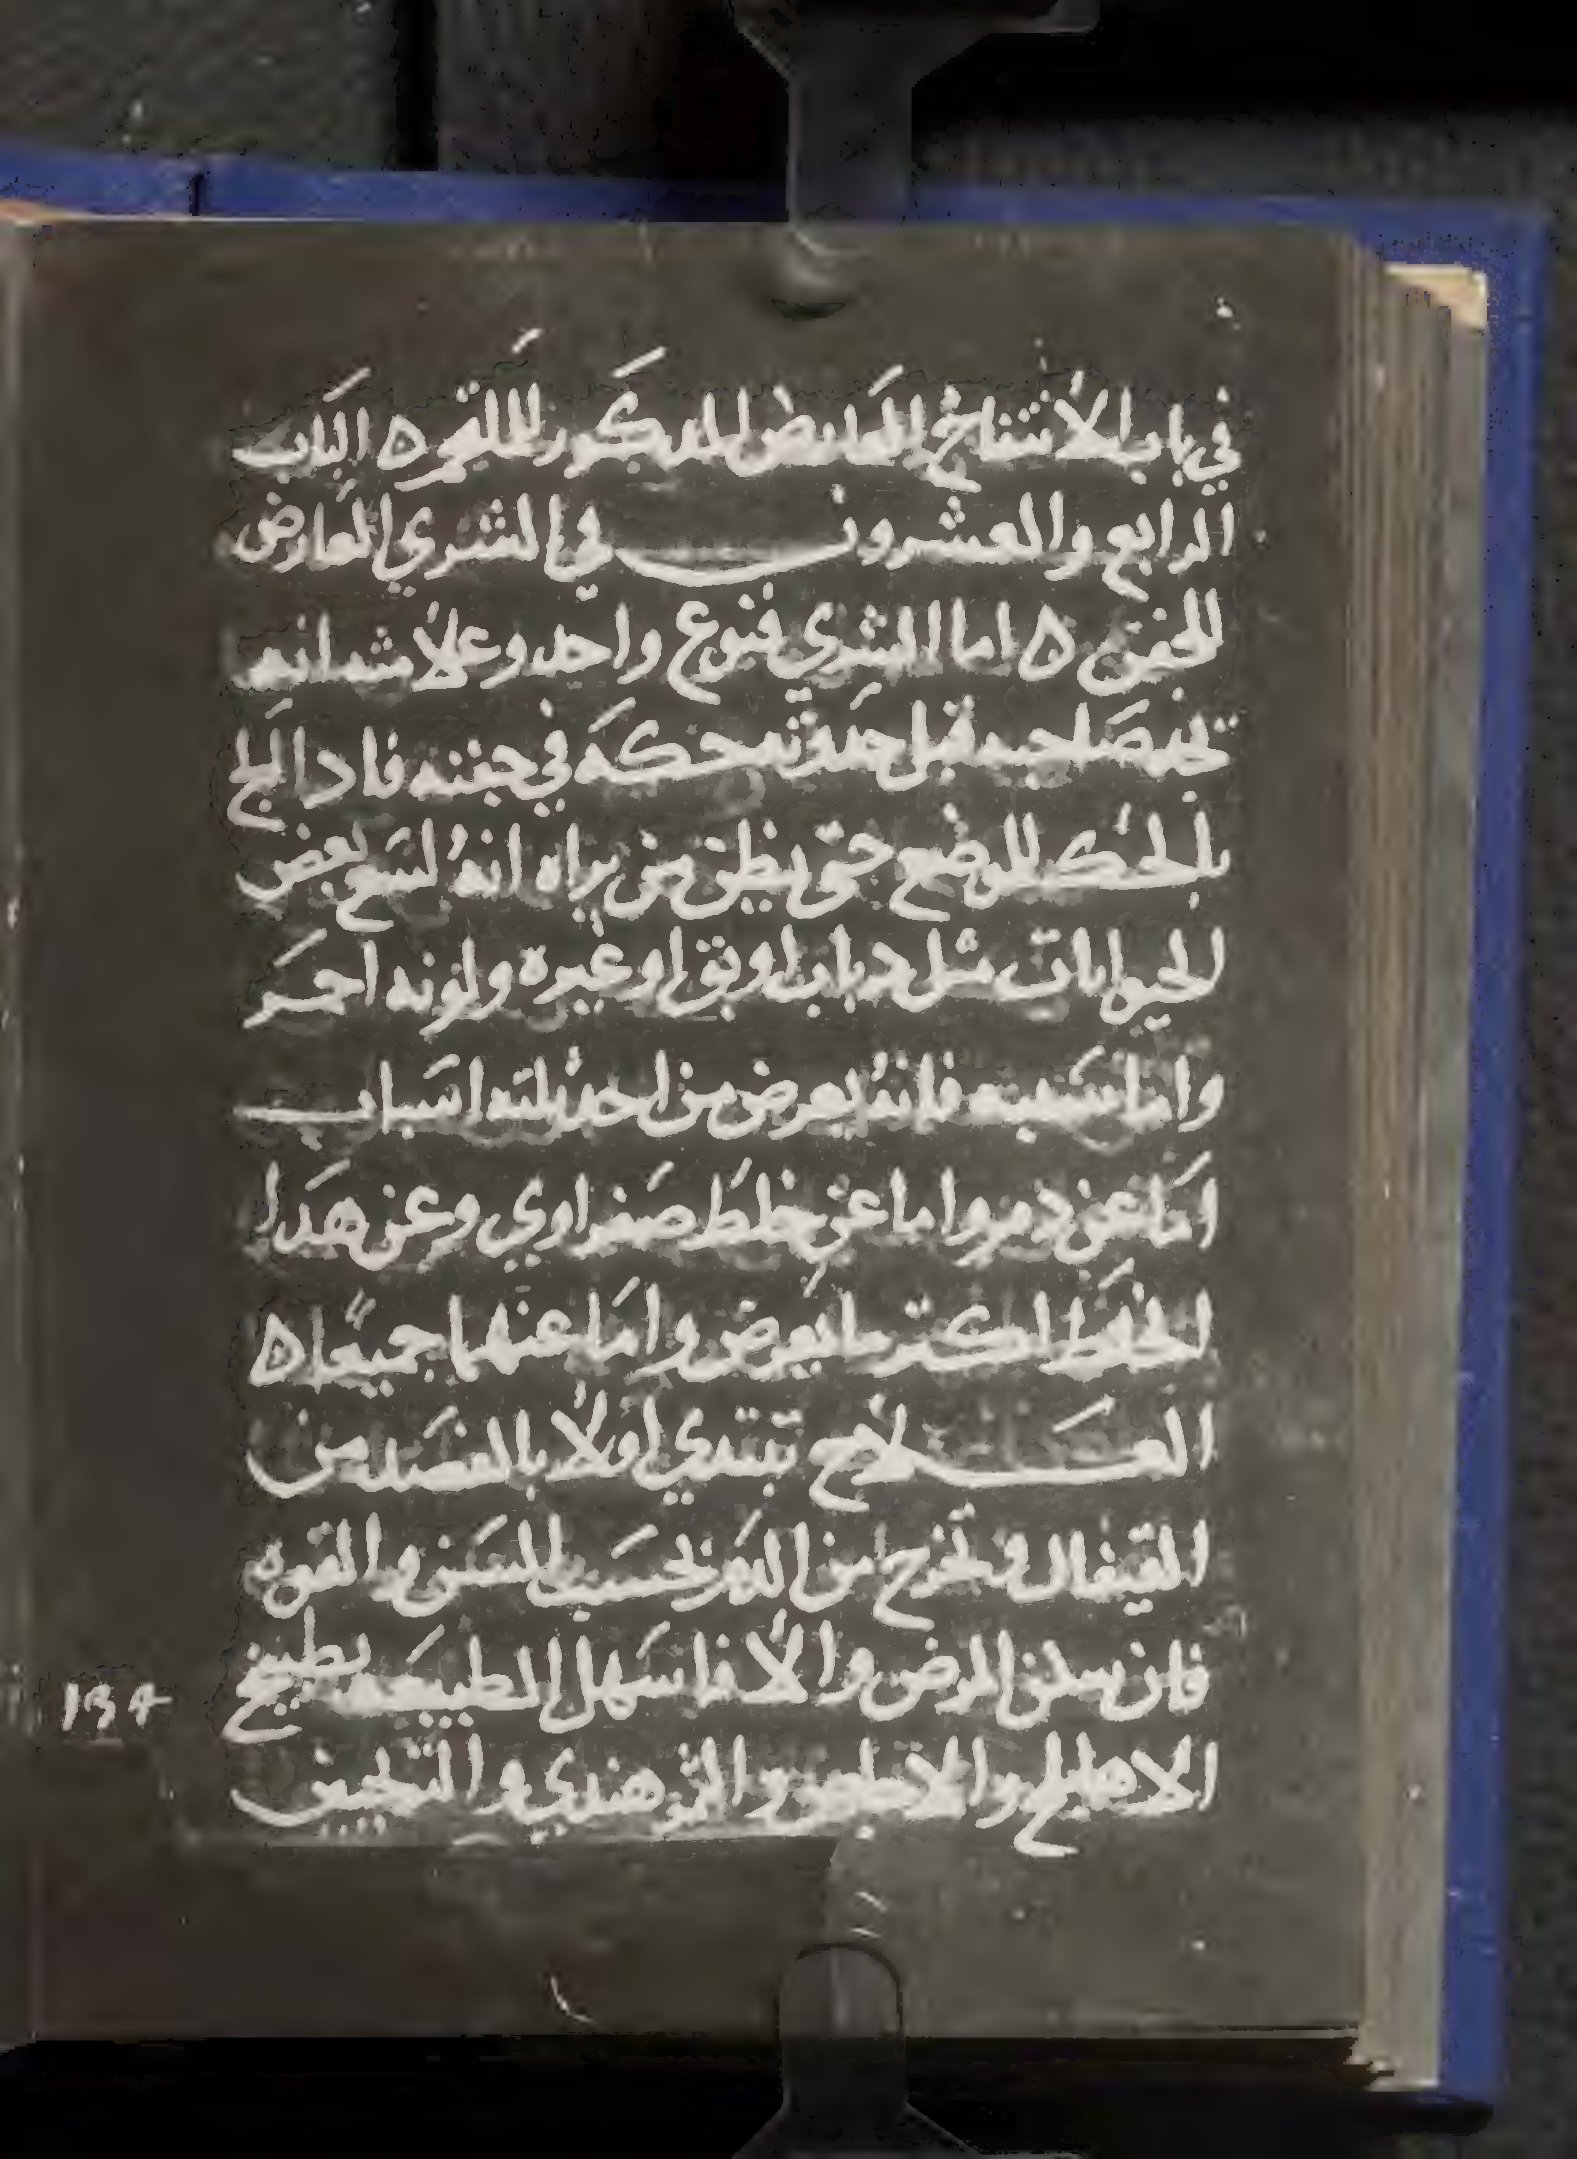 في باب الانتفاخ العارض للملتحم ه الباب
الرابع والعشرون في الشري العارض
للجفن ه اما الشري فنوع واحد وعلامته انه
تجد صاحبه قبل حدوثه حكه في جفنه فادا الح
بالحك للموضع حتى يظن من يراه انه لسع بعض
الحيوانات مثل دباب او بق او غيره ولونه احمر
واما سببه فانه يعرض من احد ثلثه اسباب
اما عن دم واما عن خلط صفراوي وعن هدا
الخلط اكتر ما يعرض واما عنهما جميعًا ه
العلاج تبتدي اولا بالفصد من
القيفال وتخرج من الدم بحسب السن والقوه
فان سكن المرض والا فاسهل الطبيعه بطبيخ
الاهليلج والاجاص والتمر هندي والترنجبين
134